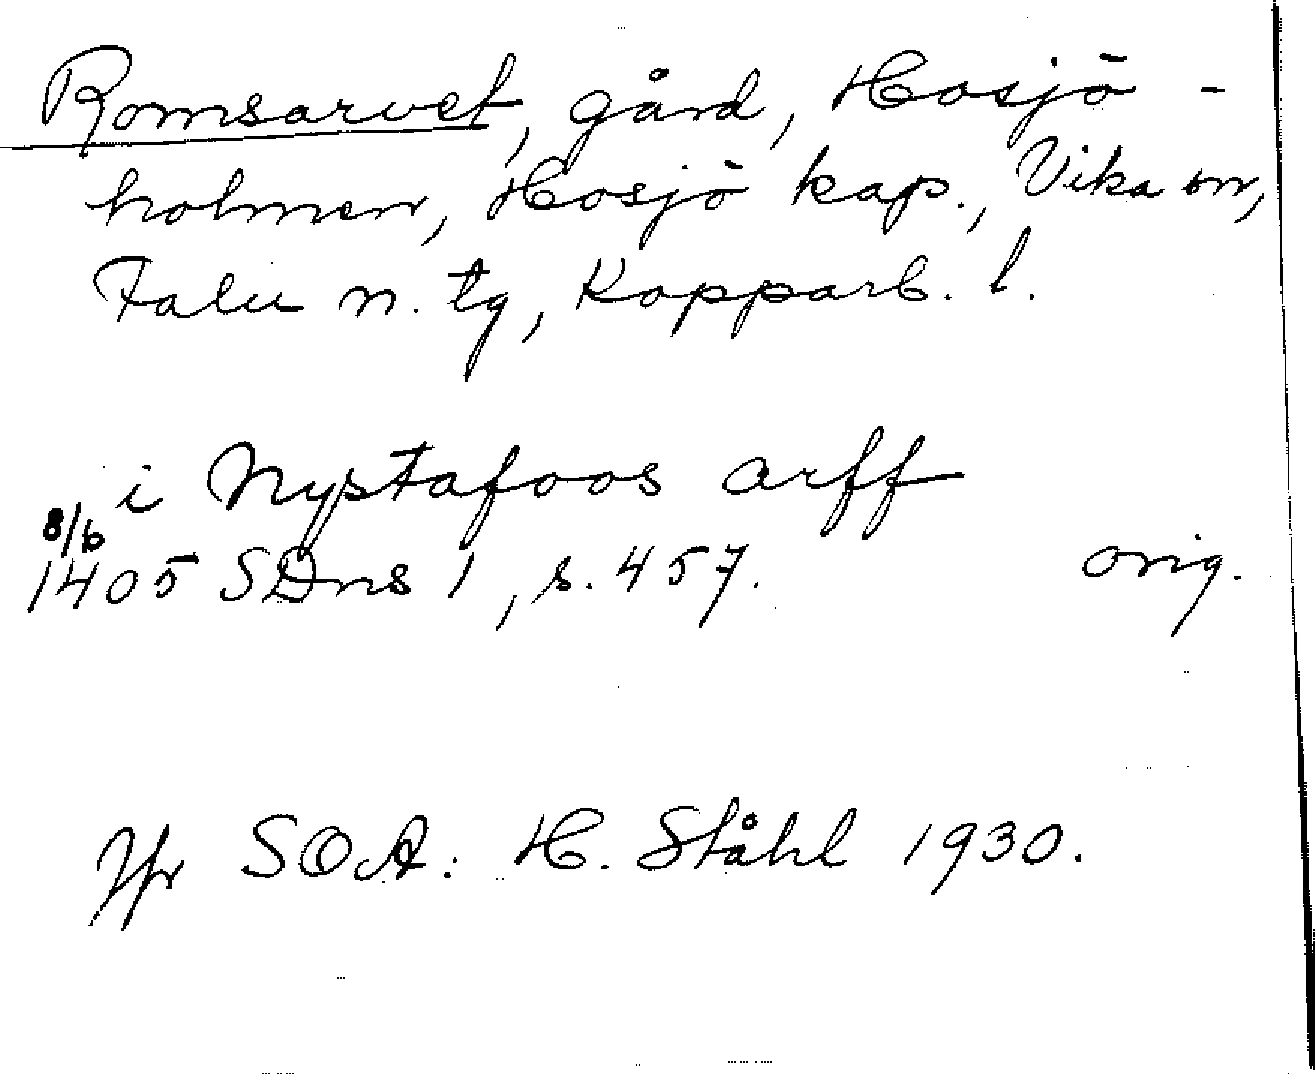 Romsarvet, gård, Hosjö-
holmen, Hosjö kap., Vika sn,
Falu n. tg, Kopparb. l.
i Nystafoos arff
8/6
1405 SDns 1, s. 457. orig.
Jfr SOA: H. Ståhl 1930.